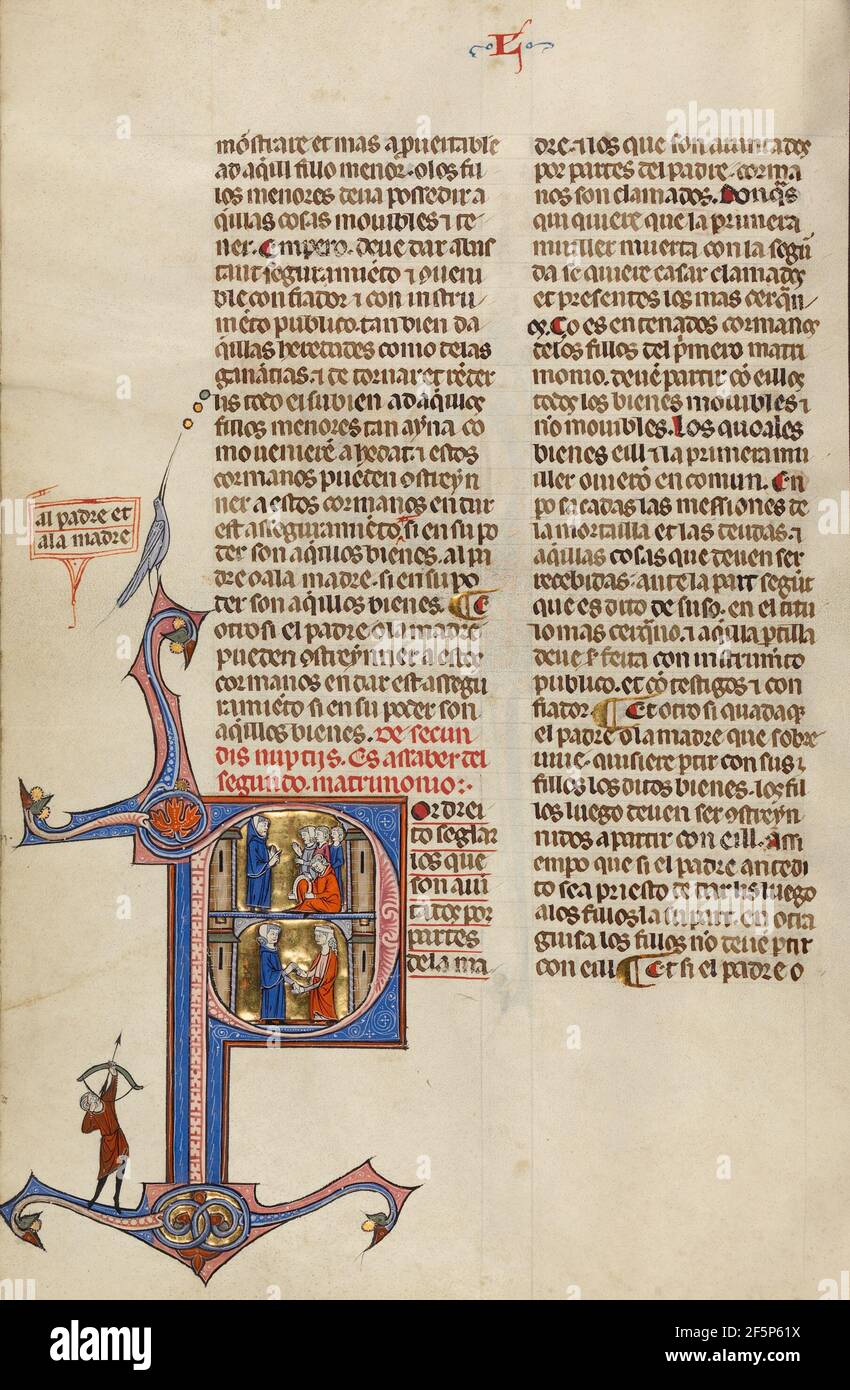 L
mostrare et mas aprueitable
ad aqill fillo menor. o los fi
los menores deua possedir a
qillas cosas mouibles ⁊ te
ner. Empero. deue dar abas
tant seguramieto ⁊ conueni
ble con fiador ⁊ con instru
meto publico. tan bien da
qillas heredades como delas
ganacias. ⁊ de tornar et reder
lis todo el su bien ad aqillos
fillos menores tan ayna co
mo ueniere a hedat. ⁊ estos
cormanos pueden ostreyn
ner a estos cormanos en dar
est asseguramieto. si en su po
der son aqillos bienes. al pa
dre o a la madre. si en su po
der son aqillos bienes. ¶ E
otrosi el padre o la madre
pueden ostreynner a estos
cormanos en dar est assegu
ramieto si en su poder son
aqillos bienes. De secun
dis nuptijs. Es assaber del
segundo. matrimonio:·
al padre et
ala madre
Or drei
to seglar
los que
son aui
tados por
partes
dela ma
dre. ⁊ los que son auantados
por partes del padre. corma
nos son clamados. Donqs
qui quiere que la primera
muller muerta con la segu
da se quiere casar clamados
et presentes los mas cerqn
os. Co es entenados cormanos
delos fillos del pmero matri
monio. deue partir co eillos
todos los bienes mouibles ⁊
no mouibles. Los quoales
bienes eill ⁊ la primera mu
ller ouiero en comun. En
po sacadas las messiones de
la mortailla et las deudas. ⁊
aqillas cosas que deuen ser
recebidas. ante la part segunt
que es dito de suso. en el titu
lo mas cerqno. ⁊ aqilla ptilla
deue sr feita con instrumeto
publico. et co testigos ⁊ con
fiador. ¶ Et otro si quadaqe
el padre o la madre que sobre
uiue. quisiere ptir con sus
fillos los ditos bienes. los fi
los luego deuen ser ostreyn
nidos a partir con eill. Assi
empo que si el padre antedi
to sea priesto de dar lis luego
a los fillos la su part. en otra
guisa los fillos no deue ptir
con eill ¶ Et si el padre o
alamy
Image ID: 2F5P61X
www.alamy.com